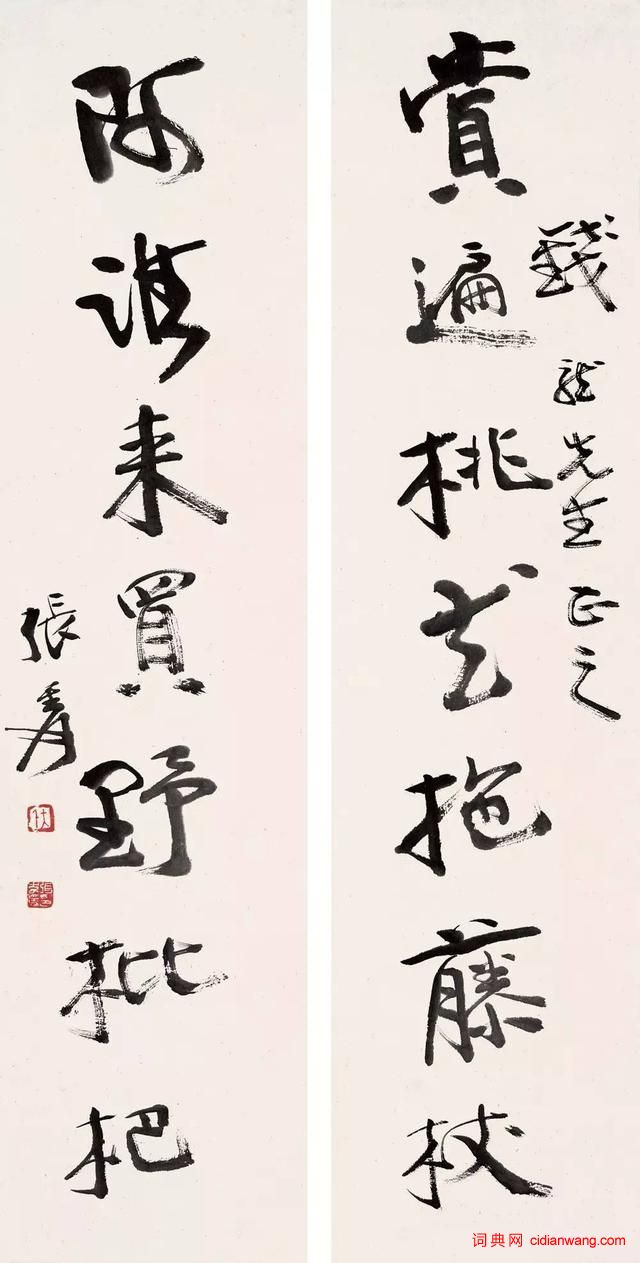 賞遍桃花拖藤杖
先生正之
阿誰来買野枇杷
張爰
词典网 cidianwang.com